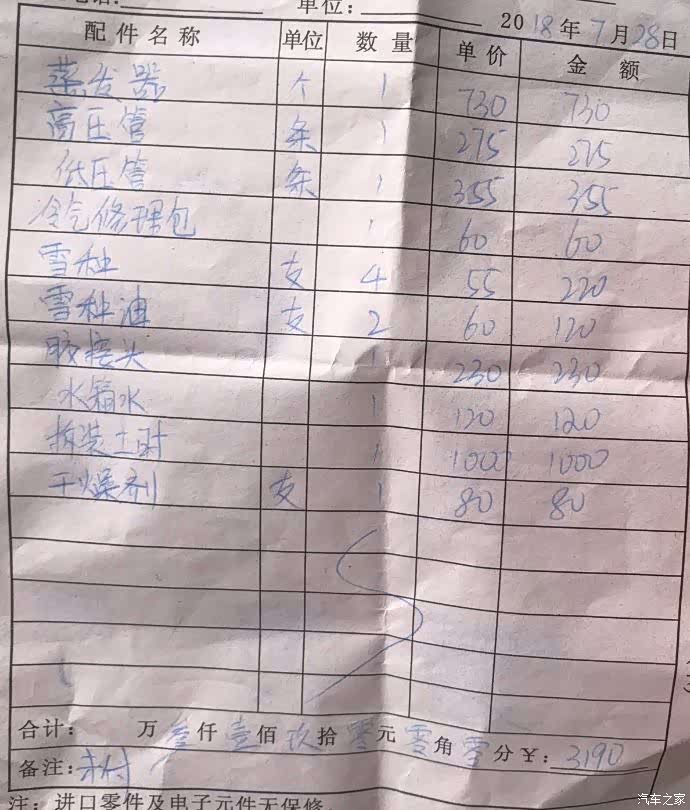 单位:
2018年7月28日
配件名称 单位 数量 单价 金额
蒸发器 个 1 730 730
高压管 条 1 275 275
低压管 条 1 355 355
冷气修理包 1 60 60
雪种 支 4 55 220
雪种油 支 2 60 120
胶接头 1 230 230
水箱水 1 120 120
拆装工时 1 1000 1000
干燥剂 支 1 80 80
合计: 万叁仟壹佰玖拾零元零角零分¥:3190
备注:未付
注:进口零件及电子元件无保修。
汽车之家